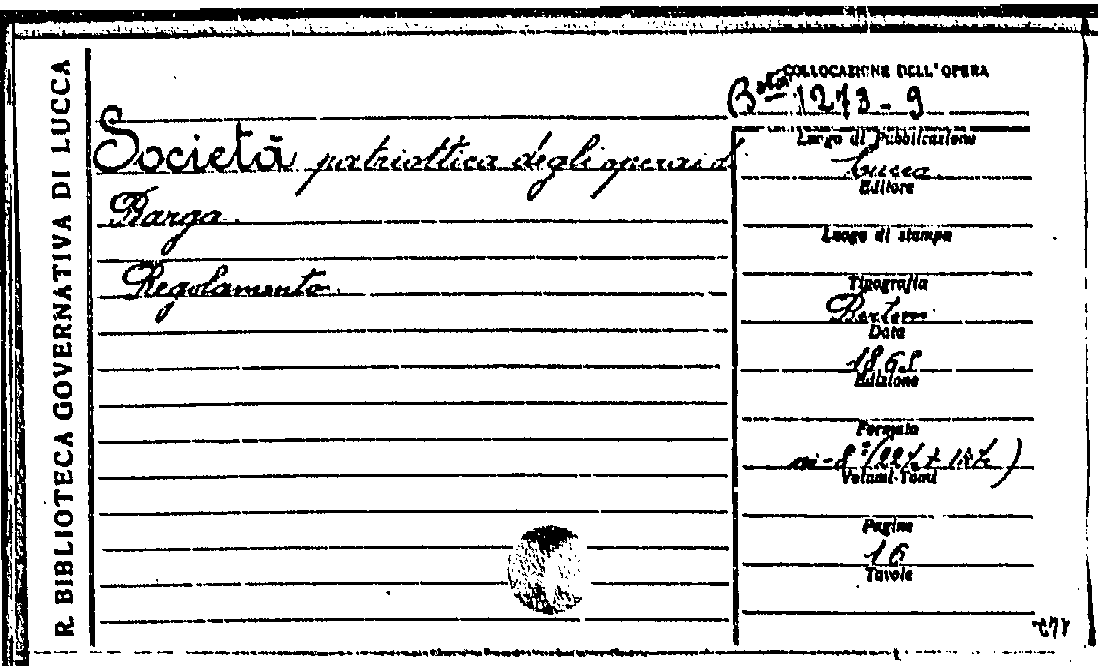 R. BIBLIOTECA GOVERNATIVA DI LUCCA
COLLOCAZIONE DELL'OPERA
Bta 1273-9
Società patriottica degli operai di
Barga.
Regolamento.
Luogo di Pubblicazione
Lucca
Editore
Luogo di stampa
Tipografia
Data
1868
Edizione
Formato
in-8°
Volumi-Tomi
Pagine
16
Tavole